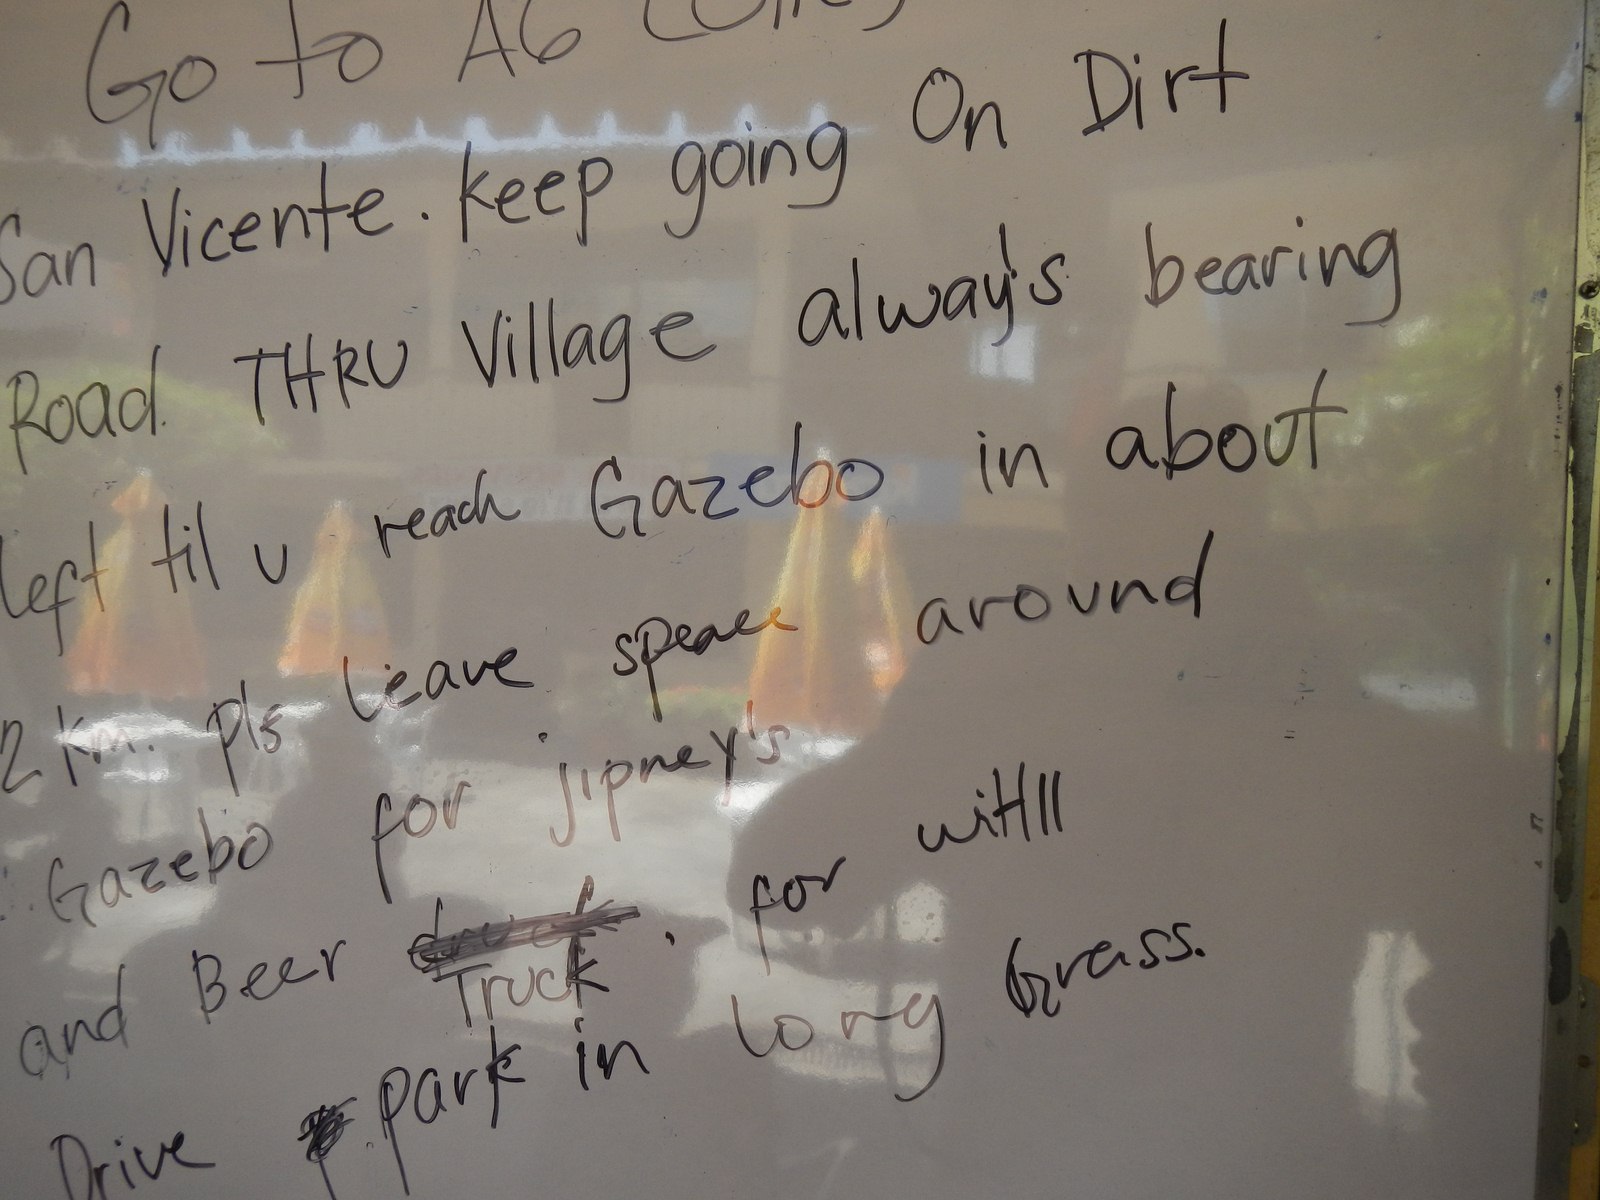 Go to A6
San Vicente. keep going On Dirt
Road. THRU Village alway's bearing
left til u reach Gazebo in about
2 km. pls leave speace around
Gazebo for jipney's
and Beer Truck. for witHll
Drive park in long Grass.